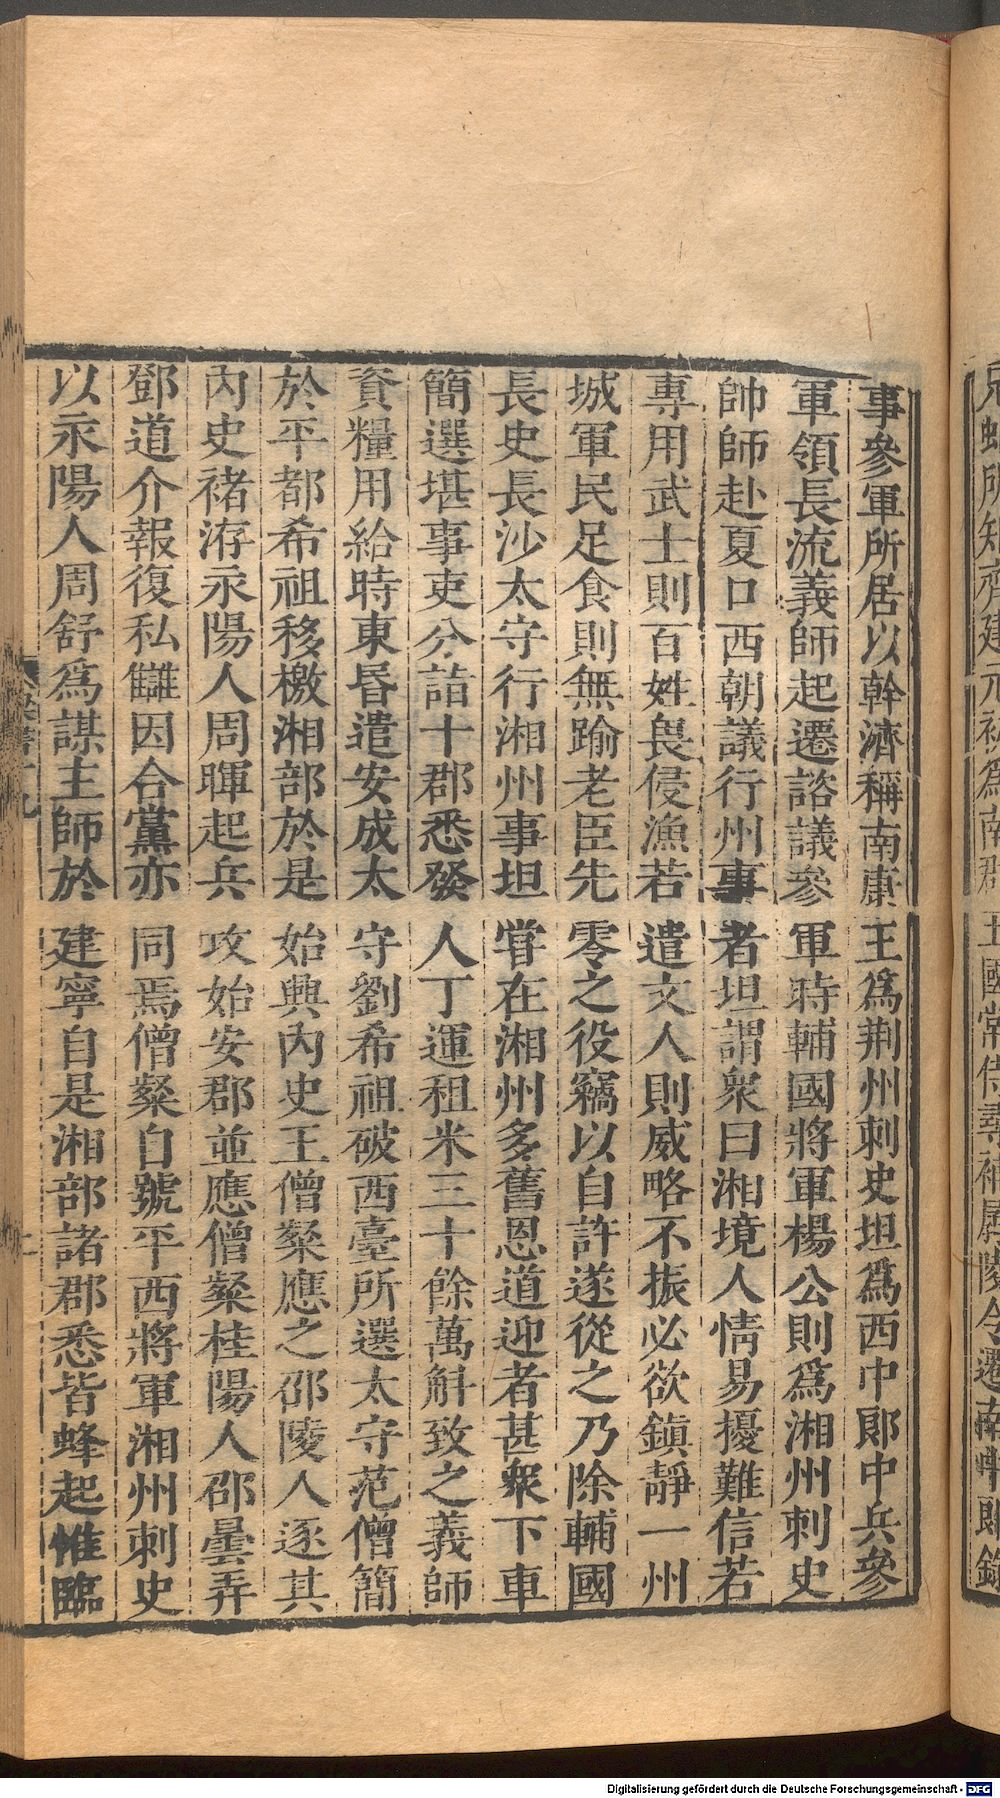 所知齊建元初爲南郡王國常侍尋補孱陵令遷南中郎錄
事參軍所居以幹濟稱南康王爲荆州刺史坦爲西中郎中兵參
軍領長流義師起遷諮議參軍時輔國將軍楊公則爲湘州刺史
帥師赴夏口西朝議行州事者坦謂衆曰湘境人情易擾難信若
專用武士則百姓畏侵漁若遣文人則威略不振必欲鎮靜一州
城軍民足食則無踰老臣先零之役竊以自許遂從之乃除輔國
長史長沙太守行湘州事坦嘗在湘州多舊恩道迎者甚衆下車
簡選堪事吏分詣十郡悉發人丁運租米三十餘萬斛致之義師
資糧用給時東昏遣安成太守劉希祖破西臺所選太守范僧簡
於平都希祖移檄湘部於是始興內史王僧粲應之邵陵人逐其
內史褚洊永陽人周暉起兵攻始安郡並應僧粲桂陽人邵曇弄
鄧道介報復私讎因合黨亦同焉僧粲自號平西將軍湘州刺史
以永陽人周舒爲謀主師於建寧自是湘部諸郡悉皆蜂起惟臨
Digitalisierung gefördert durch die Deutsche Forschungsgemeinschaft - DFG